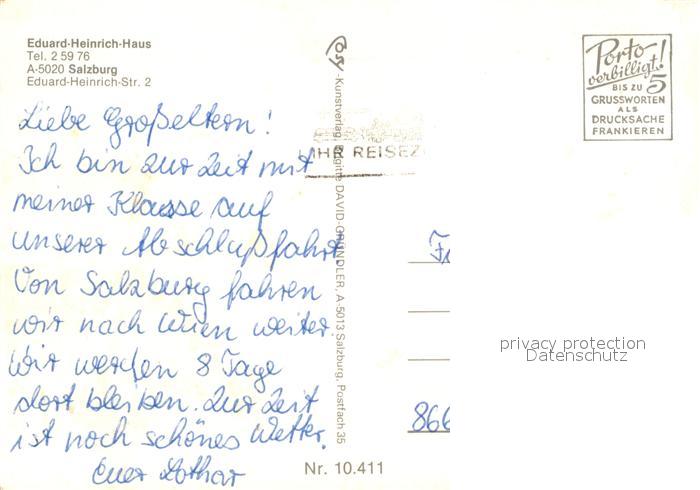 Eduard-Heinrich-Haus
Tel. 2 59 76
A-5020 Salzburg
Eduard-Heinrich-Str. 2
Liebe Großeltern!
Ich bin zur Zeit mit
meiner Klasse auf
unserer Abschlußfahrt
Von Salzburg fahren
wir nach Wien weiter.
Wir werden 8 Tage
dort bleiben. Zur Zeit
ist noch schönes Wetter.
Euer Lothar
Cosy-Kunstverlag Brigitte DAVID-GRÜNDLER, A-5013 Salzburg, Postfach 35
IHR REISEZ
Nr. 10.411
Porto
verbilligt!
BIS ZU 5
GRUSSWORTEN
ALS
DRUCKSACHE
FRANKIEREN
privacy protection
Datenschutz
866